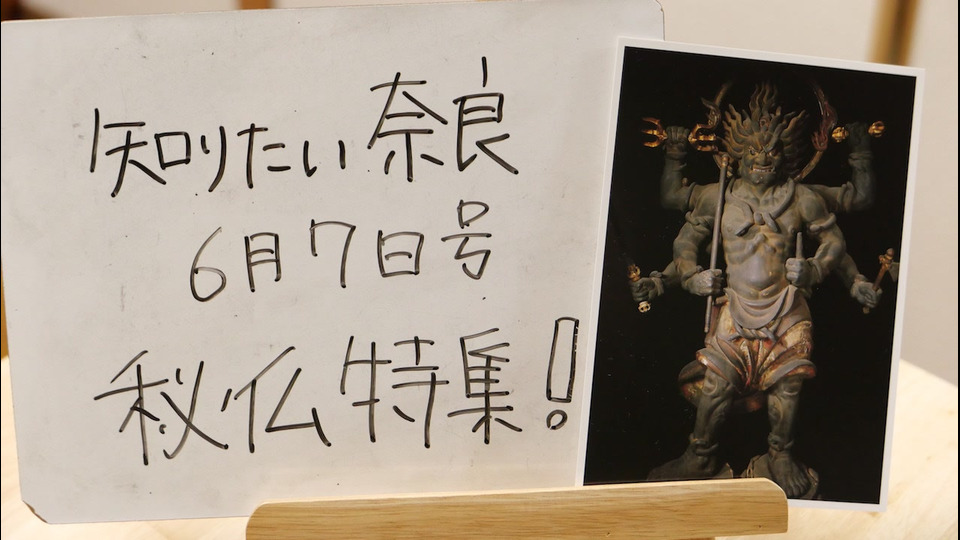 知りたい奈良
6月7日号
秘仏特集!